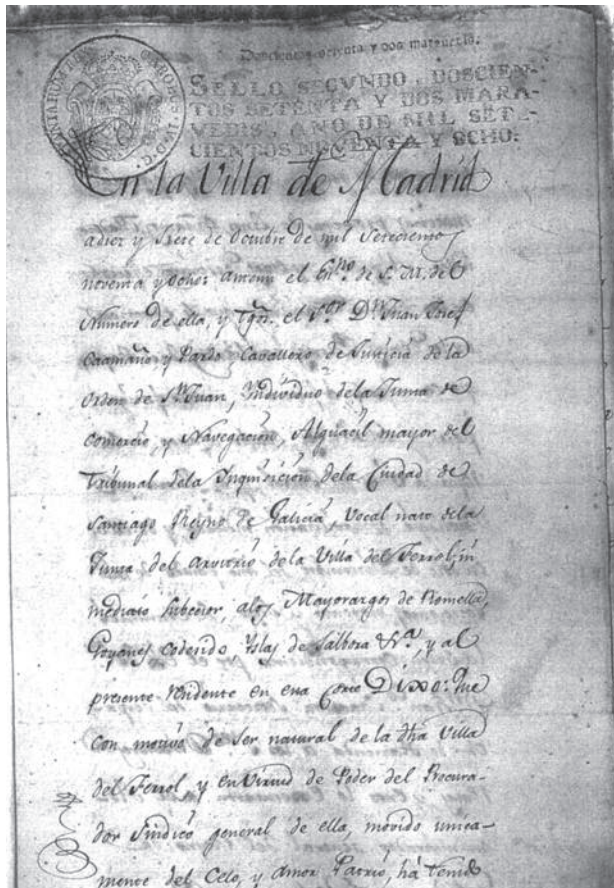 Doscientos setenta y dos maravedis.
SELLO SEGVNDO, DOSCIEN-
TOS SETENTA Y DOS MARA-
VEDIS, AÑO DE MIL SETE-
CIENTOS NOVENTA Y OCHO.
CAROLUS IV D.G. HISPANIARUM REX
En la Villa de Madrid
adiez y siete de Octubre de mil setecientos
noventa y ocho: ante mi el Essno de S. M. del
Número de ella, y tgos. el Sor. Dn. Juan Josef
Caamaño y Pardo Cavallero de Justicia de la
orden de Sn. Juan, Yndividuo dela Junta de
Comercio, y Navegación, Alguacil mayor del
Tribunal dela Inquisición dela Ciudad de
Santiago Reyno de Galicia, Vocal nato dela
Junta del arvitrio de la Villa del Ferrol, in
mediato subcesor, alos Mayorazgos de Romelle,
Goyanes Codesido, Yslas de Salbora &a., y al
presente residente en esta Corte Dixo: Que
con motivo de ser natural de la dha Villa
del Ferrol, y en virtud de Poder del Procura-
dor Síndico general de ella, movido unica-
mente del Celo, y amor Patrio, há tenido